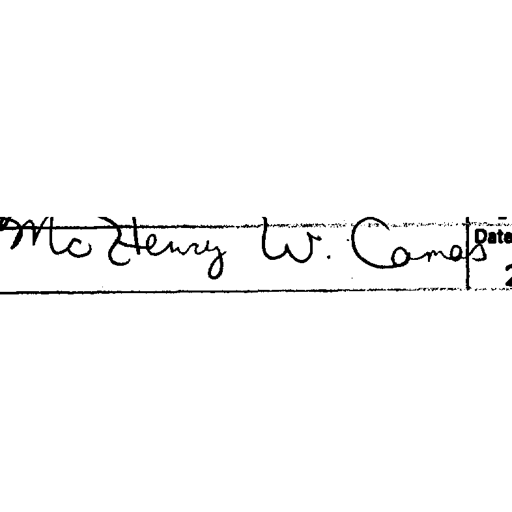 McHenry W. Camas
Date